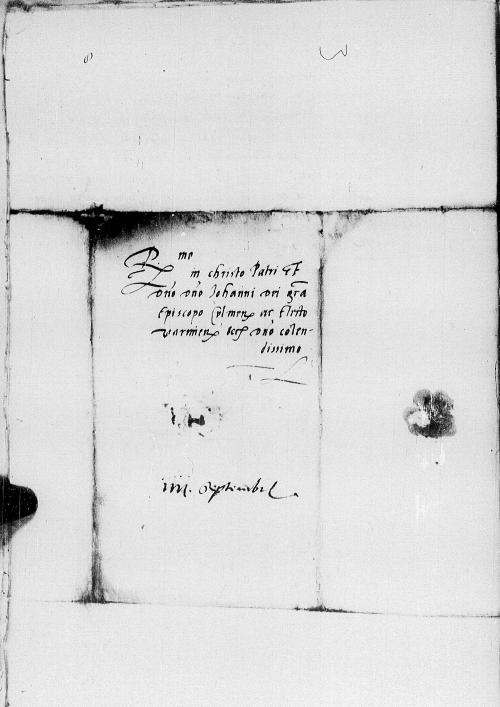 R. mo
in christo Patri et
dño dño Johanni dei gra
Episcopo Culmen ac Electo
varmien dño colen-
dissimo
Septembr